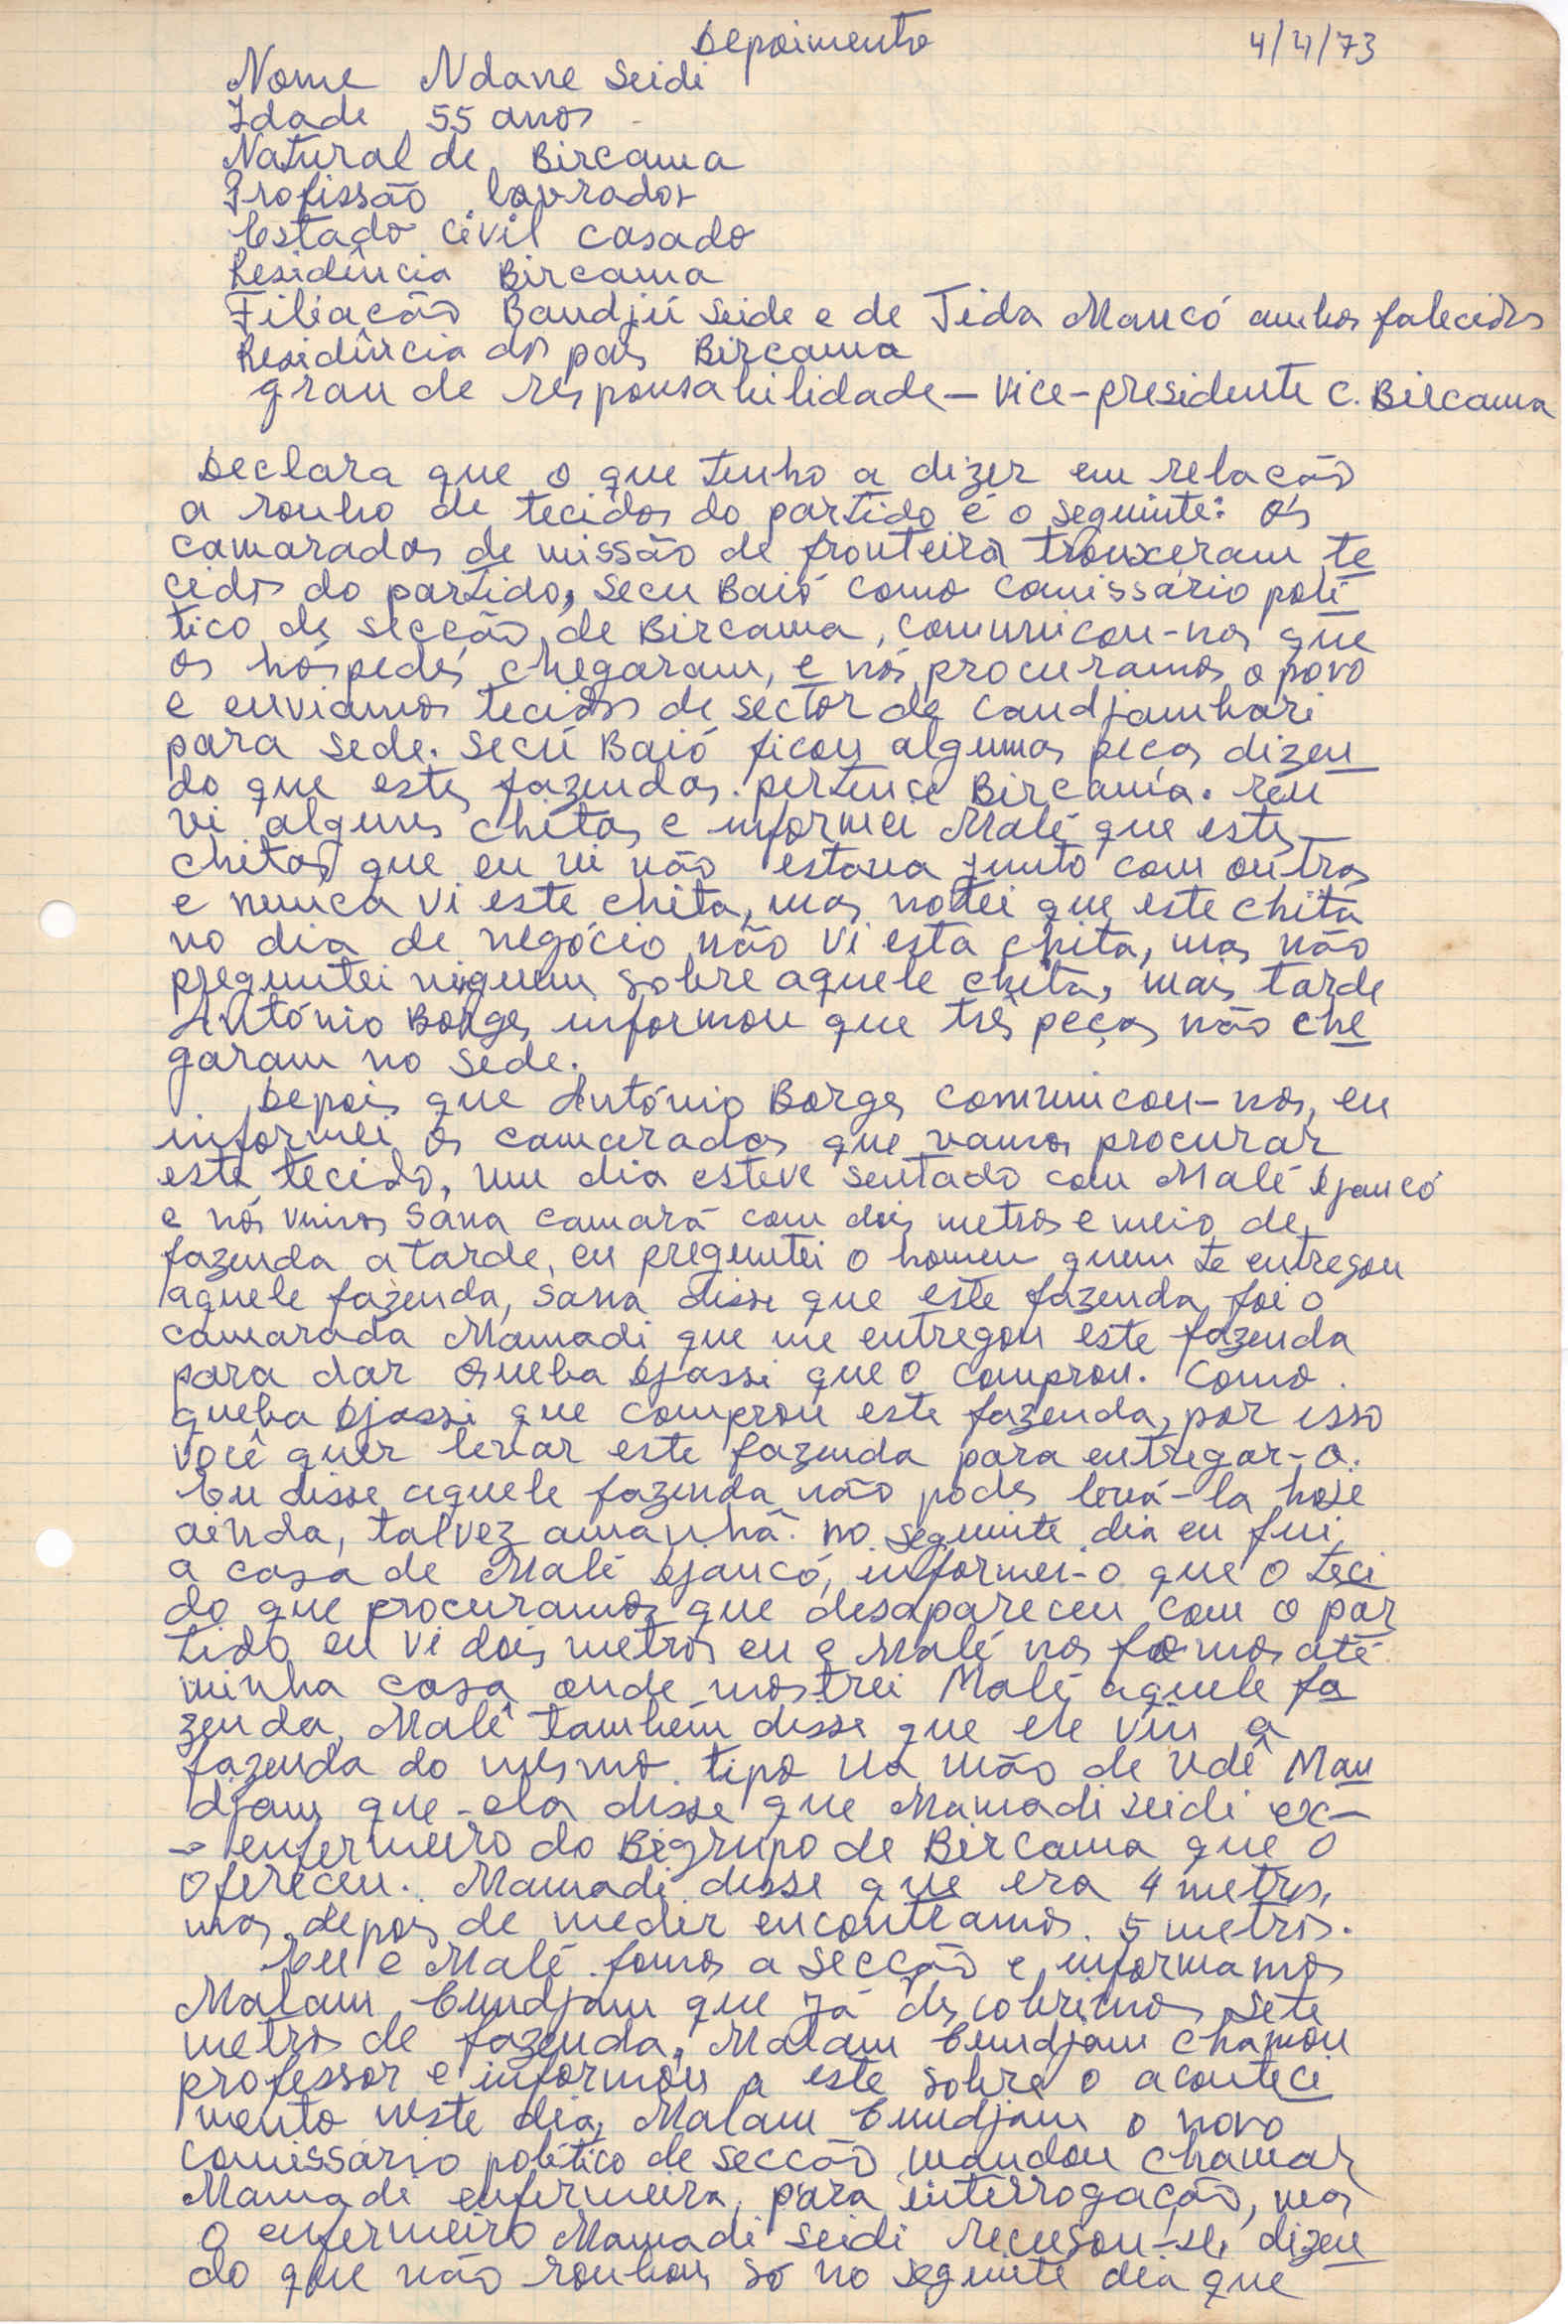 Depoimento 4/4/73
Nome Ndane Seidi
Idade 55 anos
Natural de Bircama
Profissão lavrador
Estado Civil casado
Residência Bircama
Filiação Bandjú Seide e de Tida Mancó ambos falecidos
Residência dos pais Bircama
grau de responsabilidade - Vice-presidente C. Bircama
Declara que o que tenho a dizer em relação
a roubo de tecidos do partido é o seguinte: Os
camaradas de missão de fronteira trouxeram te
cidos do partido, Secu Baió como comissário poli
tico de secção de Bircama, comunicou-nos que
os hóspedes chegaram, e nós procuramos o povo
e enviamos tecidos de sector de Candjambari
para sede. Secú Baió ficou algumas peças dizen
do que estes fazendas pertence Bircama. eu
vi alguns chitas e informei Malé que estes
chitas que eu vi não estava junto com outros
e nunca vi este chita, mas notei que este chita
no dia de negócio não vi esta chita, mas não
preguntei niguem sobre aquele chita, mais tarde
António Borges informou que três peças não che
garam no sede.
Depois que António Borges comunicou-nos, eu
informei os camaradas que vamos procurar
este tecido, um dia esteve sentado com Malé Djancó
e nós vimos Sana camará com dois metros e meio de
fazenda a tarde, eu preguntei o homem quem te entregou
aquele fazenda, Sana disse que este fazenda foi o
camarada Mamadi que me entregou este fazenda
para dar Queba Djassi que o comprou. Como
queba Djassi que comprou este fazenda, por isso
você quer levar este fazenda para entregar-o.
Eu disse aquele fazenda não podes levá-la hoje
ainda, talvez amanhã. no seguinte dia eu fui
a casa de Malé Djancó, informei-o que o teci
do que procuramos que desapareceu com o par
tido eu vi dois metros eu e Malé nos fomos até
minha casa onde mostrei Malé aquele fa
zenda, Malé também disse que ele viu a
fazenda do mesmo tipo na mão de Ndê Man
djam que-ela disse que Mamadi seidi ex-
-enfermeiro do Bigrupo de Bircama que o
ofereceu. Mamadi disse que era 4 metros,
mas depois de medir encontramos 5 metros.
Eu e Malé fomos a secção e informamos
Malam Cundjam que já descobrimos sete
metros de fazenda, Malam Cundjam chamou
professor e informou a este sobre o aconteci
mento neste dia, Malam Cundjam o novo
comissário político de secção mandou chamar
Mamadi enfermeira, para interrogação, mas
o enfermeiro Mamadi seidi recusou-se, dizen
do que não roubou só no seguinte dia que